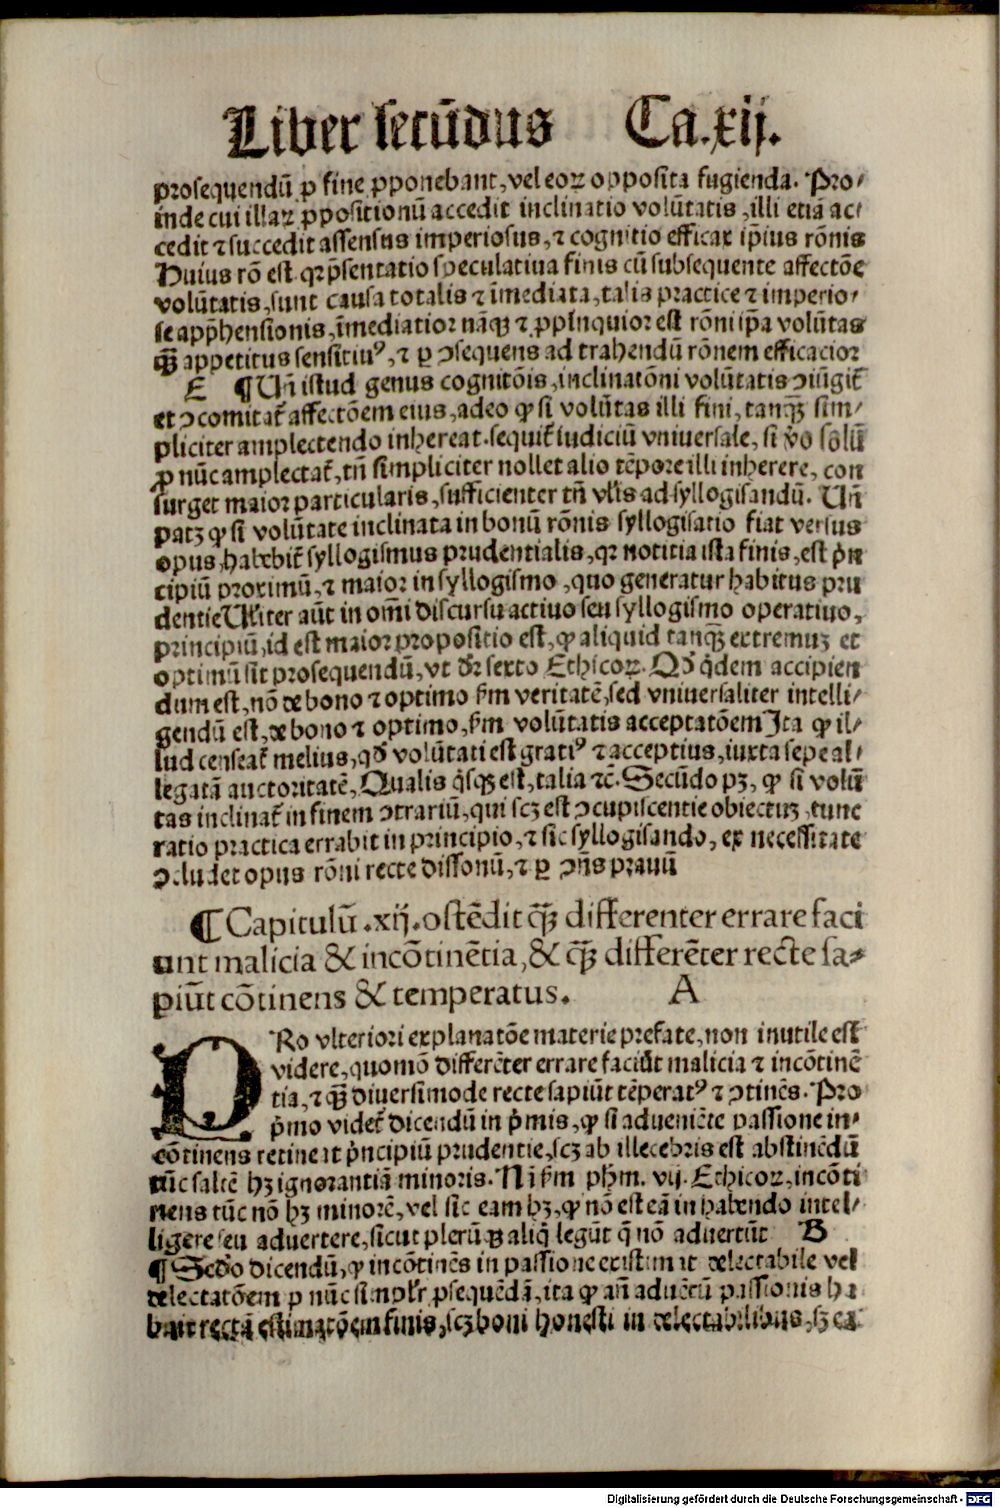 Liber secūdus Ca.xij.
prosequendū ꝓ fine ꝓponebant, vel eoꝝ opposita fugienda. Pro⸗
inde cui illaꝝ ꝓpositionū accedit inclinatio volūtatis, illi etiā ac⸗
cedit ⁊ succedit assensus imperiosus, ⁊ cognitio efficax ip̄ius rōnis
Huius rō est qꝛ p̄sentatio speculatiua finis cū subsequente affectōe
volūtatis, sunt causa totalis ⁊ īmediata, talis practice ⁊ imperio⸗
se app̄hensionis, īmediatior nāqꝫ ⁊ ꝓpinquior est rōni ip̄a volūtas
qꝫ̄ appetitus sensitiuꝰ, ⁊ ꝑ ↄsequens ad trahendū rōnem efficacior
E ¶ Un̄ istud genus cognitōis, inclinatōni volūtatis ↄiūgit̄
et ↄcomitat̄ affectōem eius, adeo ꝙ si volūtas illi fini, tanqꝫ̄ sim⸗
pliciter amplectendo inhereat. sequit̄ iudiciū vniuersale, si v̓o solū
ꝓ nūc amplectat̄, tn̄ simpliciter nollet alio tēpore illi inherere, con
surget maior particularis, sufficienter tn̄ vl̄is ad syllogisandū. Un̄
patꝫ ꝙ si volūtate inclinata in bonū rōnis syllogisatio fiat versus
opus, habebit̄ syllogismus prudentialis, qꝛ notitia ista finis, est p̓n
cipiū proximū, ⁊ maior in syllogismo, quo generatur habitus pru
dentie Ul̄iter aūt in om̄i discursu actiuo seu syllogismo operatiuo,
principiū, id est maior propositio est, ꝙ aliquid tanqꝫ̄ extremuꝫ et
optimū sit prosequendū, vt dr̄ sexto Ethicoꝝ. Qd̓ q̓dem accipien
dum est, nō de bono ⁊ optimo ẜm veritatē, sed vniuersaliter intelli⸗
gendū est, de bono ⁊ optimo, ẜm volūtatis acceptatōem Ita ꝙ il⸗
lud censeat̄ melius, qd̓ volūtati est gratiꝰ ⁊ acceptius, iuxta sepe al⸗
legatā auctoritatē, Qualis q̓sqꝫ est, talia ⁊c̄. Secūdo pꝫ, ꝙ si volū
tas inclinat̄ in finem ↄtrariū, qui scꝫ est ↄcupiscentie obiectuꝫ, tunc
ratio practica errabit in principio, ⁊ sic syllogisando, ex necessitate
ↄcludet opus rōni recte dissonū, ⁊ ꝑ ↄn̄s prauū
¶ Capitulū .xij. ostēdit qꝫ̄ differenter errare faci
unt malicia & incōtinētia, & qꝫ̄ differēter recte sa⸗
piūt cōtinens & temperatus. A
PRo vlteriori explanatōe materie prefate, non inutile est
videre, quomō differēter errare faciūt malicia ⁊ incōtinē
tia, ⁊ qꝫ̄ diuersimode recte sapiūt tēperatꝰ ⁊ ↄtinēs. Pro
p̓mo videt̄ dicendū in p̓mis, ꝙ si adueniēte passione in⸗
cōtinens retineat p̓ncipiū prudentie, scꝫ ab illecebris est abstinēdū
tūc saltē hꝫ ignorantiā minoris. Nā ẜm ph̄m. vij. Ethicoꝝ, incōti
nens tūc nō hꝫ minorē, vel sic eam hꝫ, ꝙ nō est eā in habendo intel⸗
ligere seu aduertere, sicut plerūqꝫ aliq̓ legūt q̄ nō aduertūt B
¶ Scd̓o dicendū, ꝙ incōtinēs in passione existimat delectabile vel
delectatōem ꝓ nūc simpl̓r ꝓsequēdā, ita ꝙ an̄ aduētū passionis ha
buit rectā estimatōem finis, scꝫ boni honesti in delectabilibus, sꝫ ea